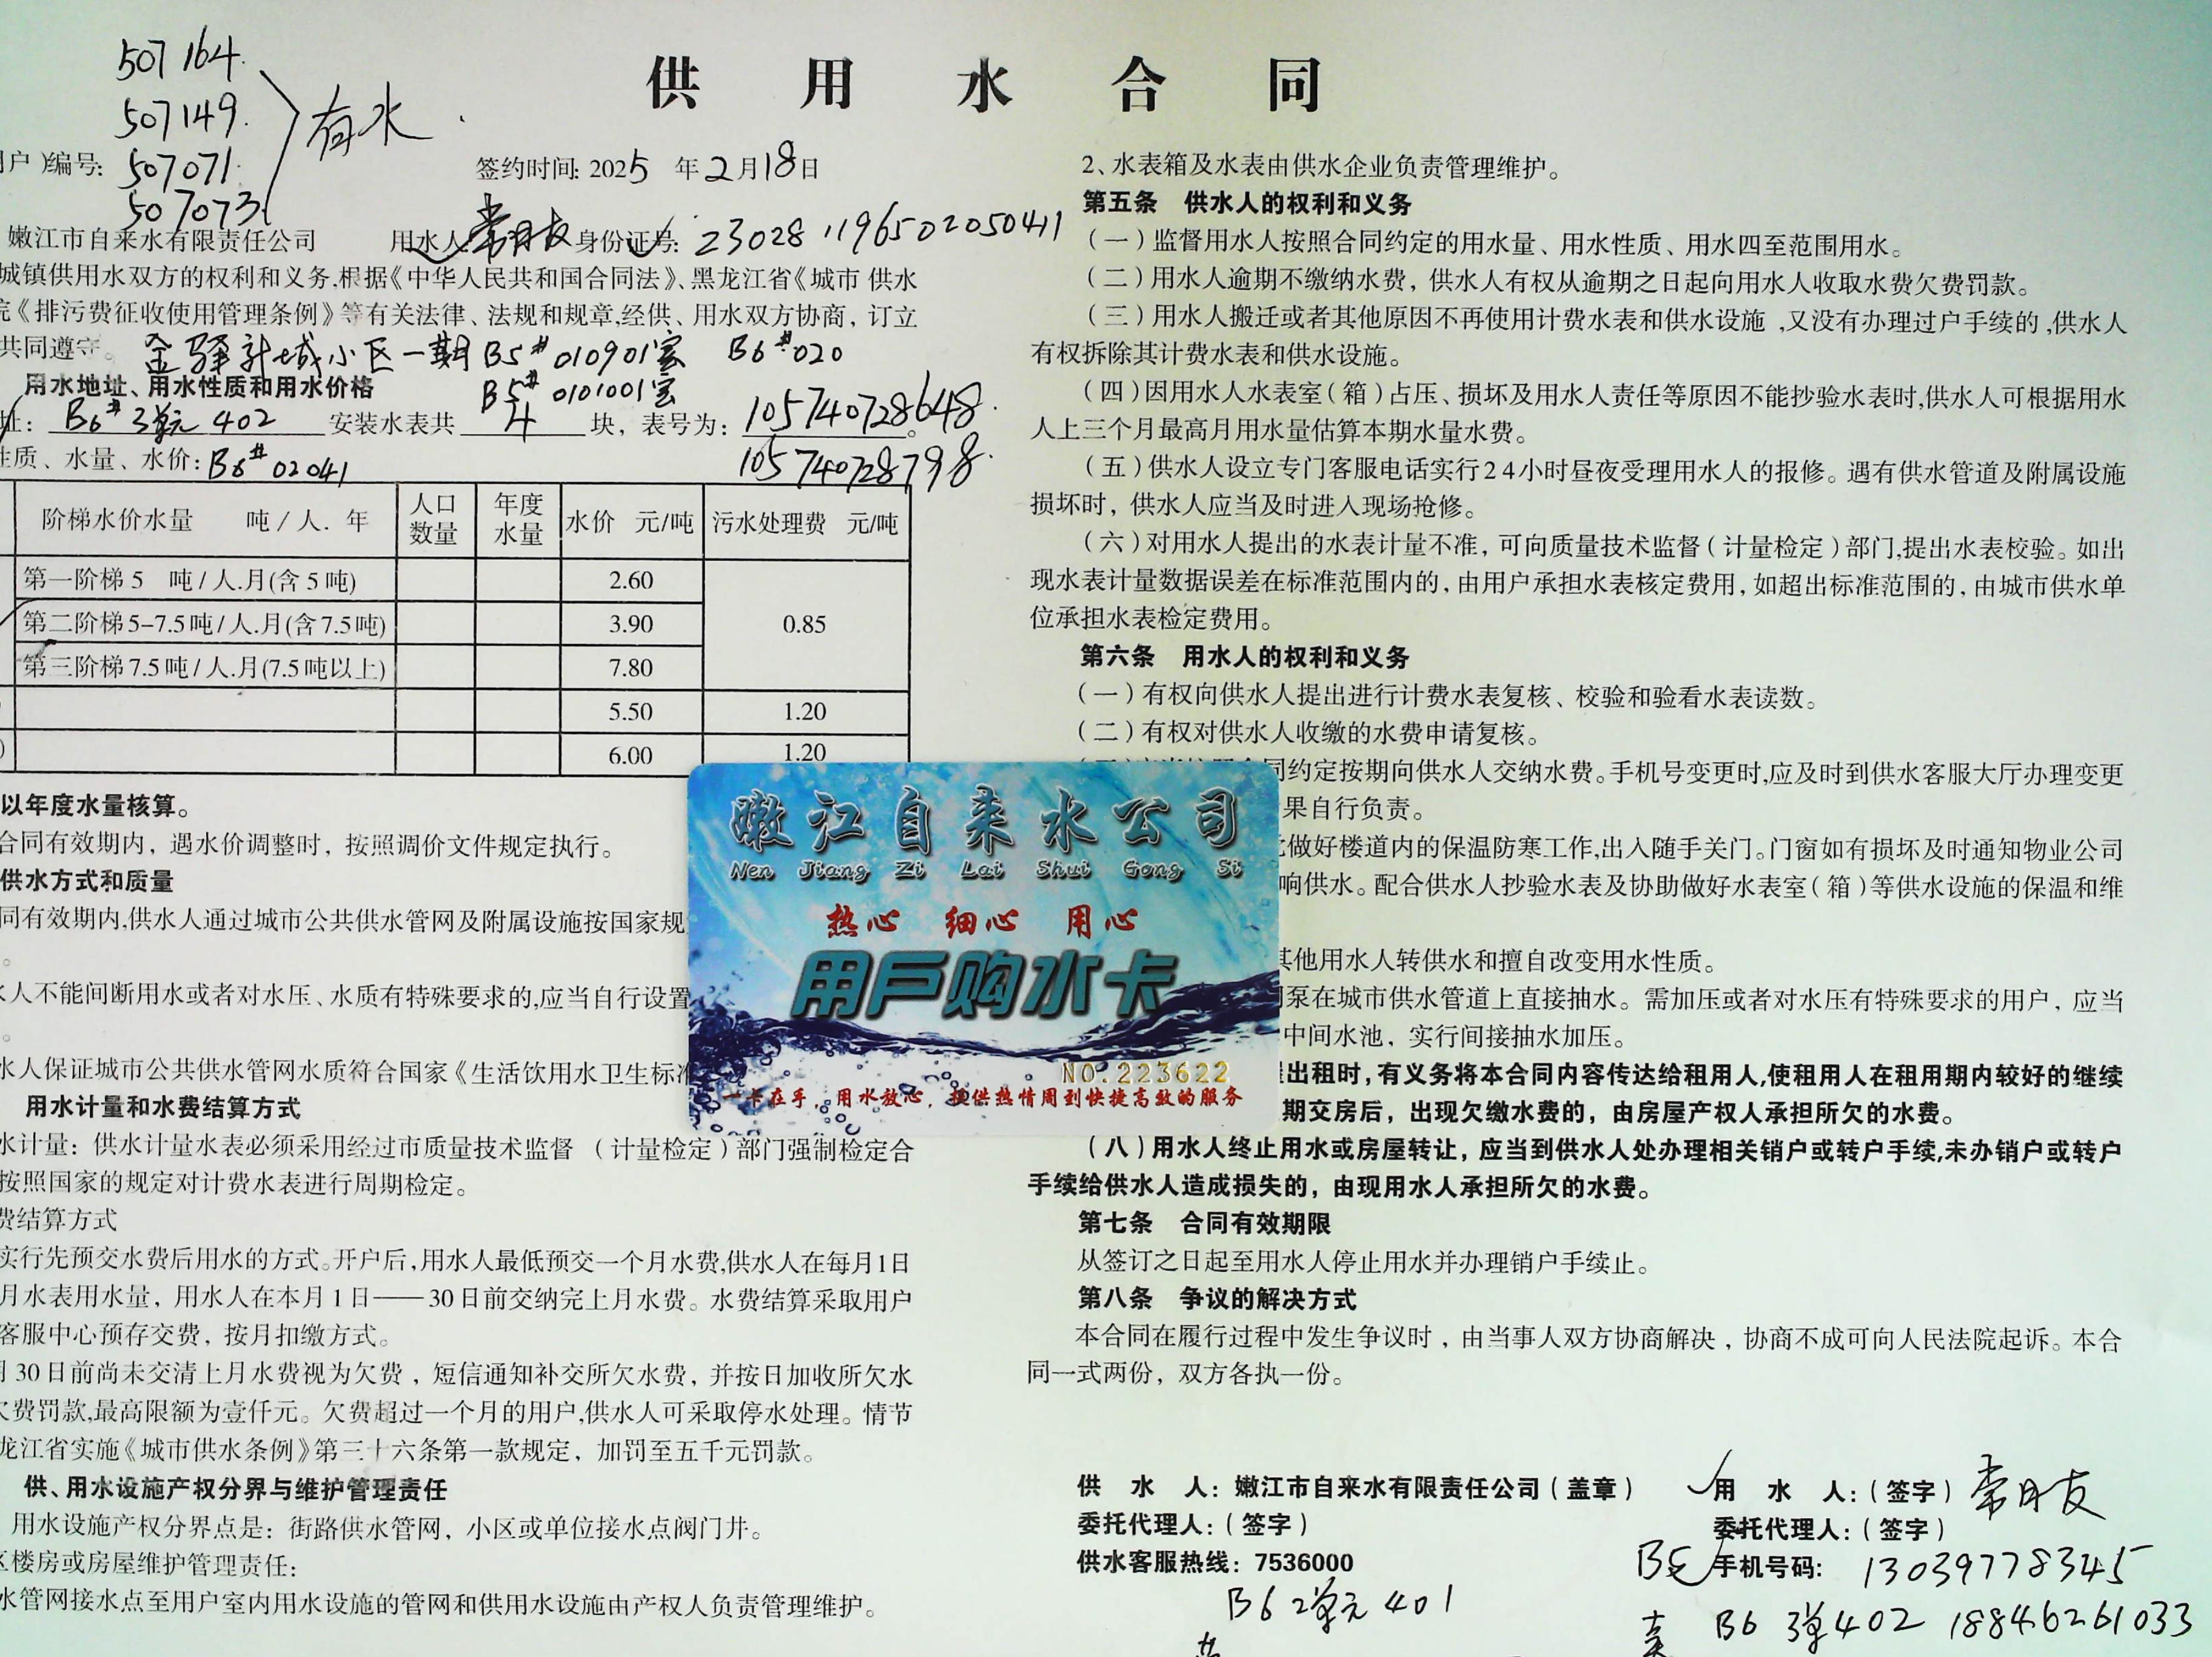 供 用 水 合 同
507164.
507149.
507071.
507073
有水
户)编号:
签约时间: 2025 年2月18日
嫩江市自来水有限责任公司 用水人 常月友 身份证号: 230281196502050411
城镇供用水双方的权利和义务,根据《中华人民共和国合同法》、黑龙江省《城市 供水
《排污费征收使用管理条例》等有关法律、法规和规章,经供、用水双方协商, 订立
共同遵守。 金驿新城小区一期 B5# 010901室 B6# 020
B5# 0101001室
用水地址、用水性质和用水价格
址: B6# 3单元 402 安装水表共 4 块, 表号为: 105740728648.
105740728798.
性质、水量、水价: B6# 02041
阶梯水价水量 吨/人. 年 人口数量 年度水量 水价 元/吨 污水处理费 元/吨
第一阶梯 5 吨/人.月(含 5 吨) 2.60 0.85
第二阶梯 5-7.5 吨/人.月(含 7.5 吨) 3.90
第三阶梯 7.5 吨/人.月(7.5 吨以上) 7.80
5.50 1.20
6.00 1.20
以年度水量核算。
合同有效期内, 遇水价调整时, 按照调价文件规定执行。
供水方式和质量
同有效期内,供水人通过城市公共供水管网及附属设施按国家规
。
人不能间断用水或者对水压、水质有特殊要求的,应当自行设置
。
水人保证城市公共供水管网水质符合国家《生活饮用水卫生标准
用水计量和水费结算方式
水计量: 供水计量水表必须采用经过市质量技术监督 (计量检定)部门强制检定合
按照国家的规定对计费水表进行周期检定。
费结算方式
实行先预交水费后用水的方式。开户后,用水人最低预交一个月水费,供水人在每月1日
月水表用水量, 用水人在本月 1 日——30 日前交纳完上月水费。水费结算采取用户
客服中心预存交费, 按月扣缴方式。
月 30 日前尚未交清上月水费视为欠费, 短信通知补交所欠水费, 并按日加收所欠水
欠费罚款,最高限额为壹仟元。欠费超过一个月的用户,供水人可采取停水处理。情节
龙江省实施《城市供水条例》第三十六条第一款规定, 加罚至五千元罚款。
供、用水设施产权分界与维护管理责任
用水设施产权分界点是: 街路供水管网, 小区或单位接水点阀门井。
区楼房或房屋维护管理责任:
水管网接水点至用户室内用水设施的管网和供用水设施由产权人负责管理维护。
2、水表箱及水表由供水企业负责管理维护。
第五条 供水人的权利和义务
(一)监督用水人按照合同约定的用水量、用水性质、用水四至范围用水。
(二)用水人逾期不缴纳水费, 供水人有权从逾期之日起向用水人收取水费欠费罚款。
(三)用水人搬迁或者其他原因不再使用计费水表和供水设施,又没有办理过户手续的,供水人
有权拆除其计费水表和供水设施。
(四)因用水人水表室(箱)占压、损坏及用水人责任等原因不能抄验水表时,供水人可根据用水
人上三个月最高月用水量估算本期水量水费。
(五)供水人设立专门客服电话实行24小时昼夜受理用水人的报修。遇有供水管道及附属设施
损坏时, 供水人应当及时进入现场抢修。
(六)对用水人提出的水表计量不准, 可向质量技术监督(计量检定)部门,提出水表校验。如出
现水表计量数据误差在标准范围内的, 由用户承担水表核定费用, 如超出标准范围的, 由城市供水单
位承担水表检定费用。
第六条 用水人的权利和义务
(一)有权向供水人提出进行计费水表复核、校验和验看水表读数。
(二)有权对供水人收缴的水费申请复核。
同约定按期向供水人交纳水费。手机号变更时,应及时到供水客服大厅办理变更
果自行负责。
做好楼道内的保温防寒工作,出入随手关门。门窗如有损坏及时通知物业公司
响供水。配合供水人抄验水表及协助做好水表室(箱)等供水设施的保温和维
其他用水人转供水和擅自改变用水性质。
泵在城市供水管道上直接抽水。需加压或者对水压有特殊要求的用户, 应当
中间水池, 实行间接抽水加压。
出租时, 有义务将本合同内容传达给租用人,使租用人在租用期内较好的继续
期交房后, 出现欠缴水费的, 由房屋产权人承担所欠的水费。
(八)用水人终止用水或房屋转让, 应当到供水人处办理相关销户或转户手续,未办销户或转户
手续给供水人造成损失的, 由现用水人承担所欠的水费。
第七条 合同有效期限
从签订之日起至用水人停止用水并办理销户手续止。
第八条 争议的解决方式
本合同在履行过程中发生争议时, 由当事人双方协商解决, 协商不成可向人民法院起诉。本合
同一式两份, 双方各执一份。
供 水 人: 嫩江市自来水有限责任公司(盖章)
委托代理人:(签字)
供水客服热线: 7536000
B6 2单元 401
用 水 人:(签字) 常月友
委托代理人:(签字)
手机号码: 13039778345
B6 3单402 18846261033
嫩江自来水公司
Nen Jiang Zi Lai Shui Gong Si
热心 细心 用心
用户购水卡
NO.223622
一卡在手, 用水放心, 提供热情周到快捷高效的服务